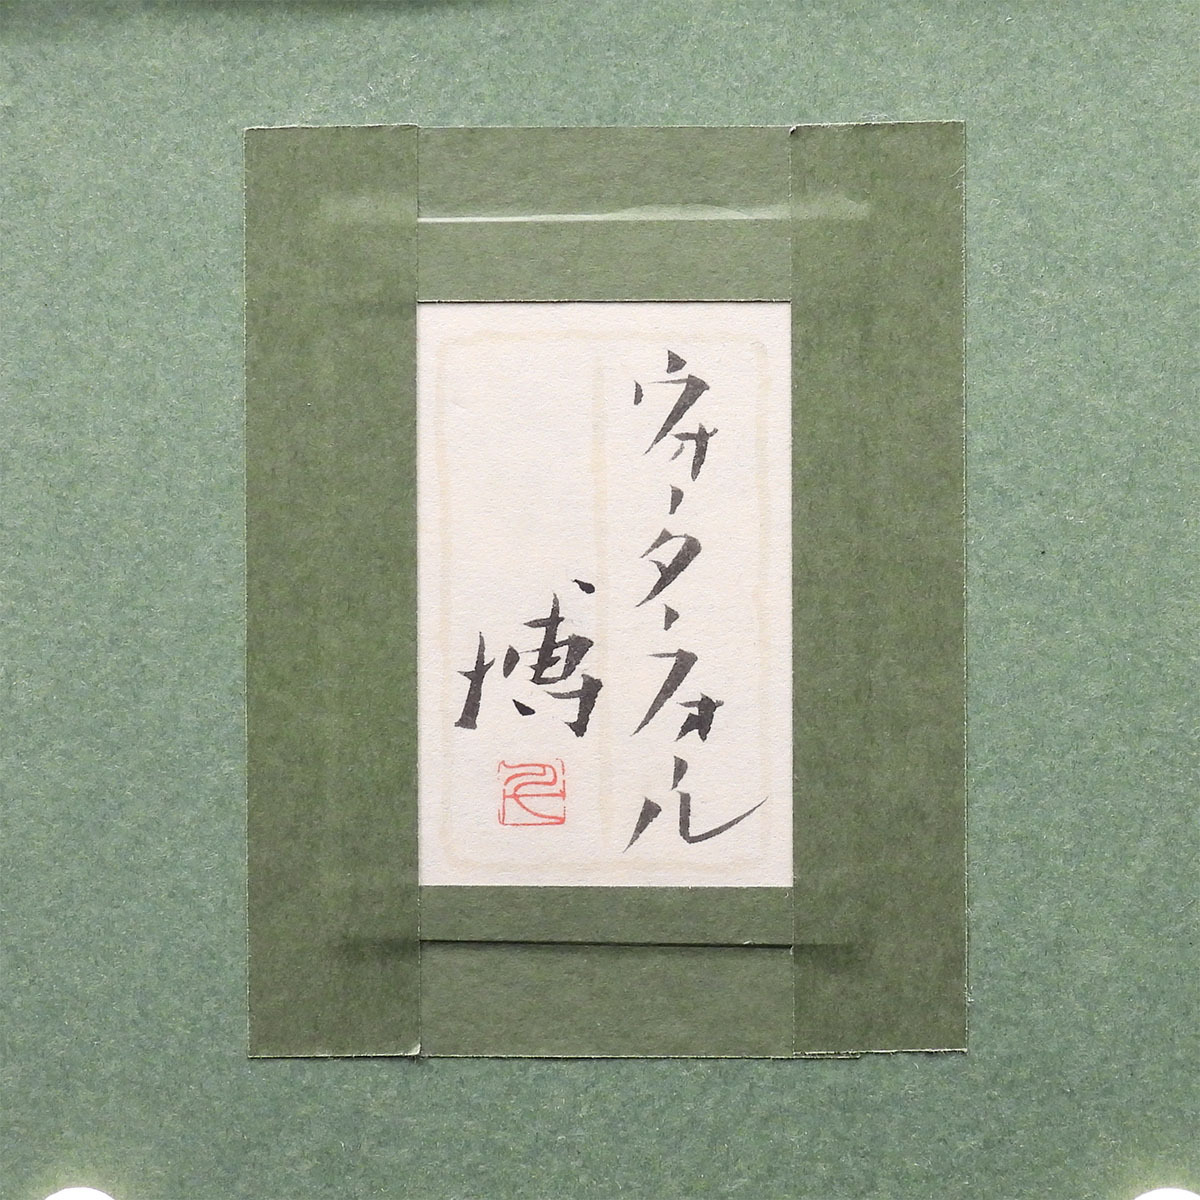 ウォーターフォール
博